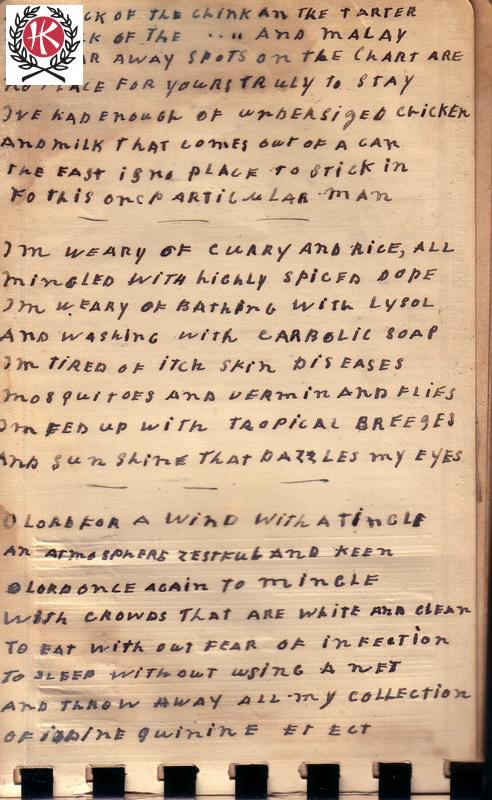 HK
CK OF THE CHINK AN THE TARTER
K OF THE .. " AND MALAY
R AWAY SPOTS ON THE CHART ARE
NO PLACE FOR YOURS TRULY TO STAY
I'VE HAD ENOUGH OF UNDERSIZED CHICKEN
AND MILK THAT COMES OUT OF A CAN
THE EAST IS NO PLACE TO STICK IN
FO THIS ONE PARTICULAR MAN
I'M WEARY OF CURRY AND RICE, ALL
MINGLED WITH HIGHLY SPICED DOPE
I'M WEARY OF BATHING WITH LYSOL
AND WASHING WITH CARBOLIC SOAP
I'M TIRED OF ITCH SKIN DISEASES
MOSQUITOES AND VERMIN AND FLIES
I'M FED UP WITH TROPICAL BREEZES
AND SUNSHINE THAT DAZZLES MY EYES
O LORD FOR A WIND WITH A TINGLE
AN ATMOSPHERE ZESTFUL AND KEEN
O LORD ONCE AGAIN TO MINGLE
WITH CROWDS THAT ARE WHITE AND CLEAN
TO EAT WITH OUT FEAR OF INFECTION
TO SLEEP WITHOUT USING A NET
AND THROW AWAY ALL MY COLLECTION
OF IODINE QUININE ET ECT